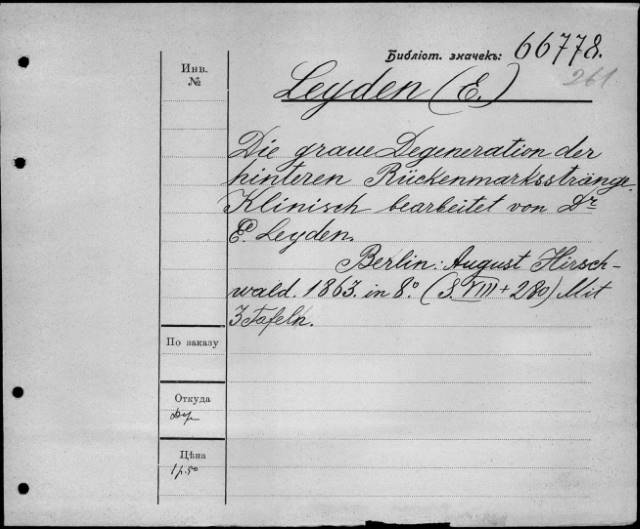 Библіот. значекъ: 66778.
261
Инв.
№
Leyden (E.)
Die graue Degeneration der
hinteren Rückenmarksstränge.
Klinisch bearbeitet von Dr
E. Leyden.
Berlin: August Hirsch-
wald. 1863. in 8º. (S. VIII + 280) Mit
3 Tafeln.
По заказу
Откуда
Цѣна
1р50